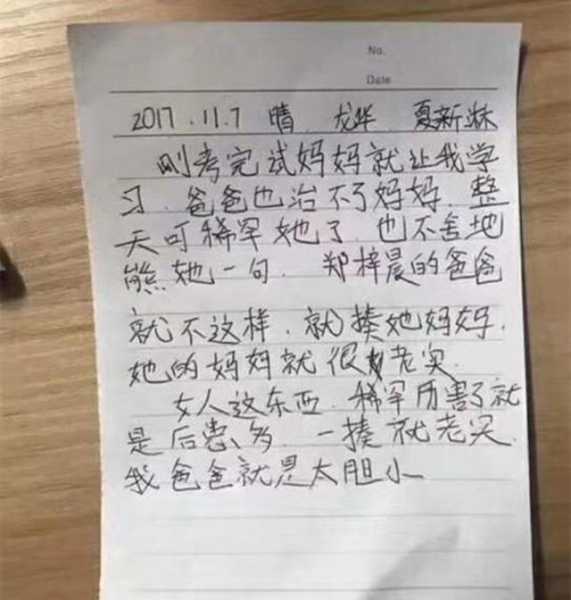 No.
Date
2017.11.7 晴 龙华 夏新淋
刚考完试妈妈就让我学
习.爸爸也治不了妈妈.整
天可稀罕她了.也不舍地
熊她一句.郑梓晨的爸爸
就不这样.就揍她妈妈.
她的妈妈就很老实.
女人这东西.稀罕历害了就
是后患多.一揍就老实.
我爸爸就是太胆小